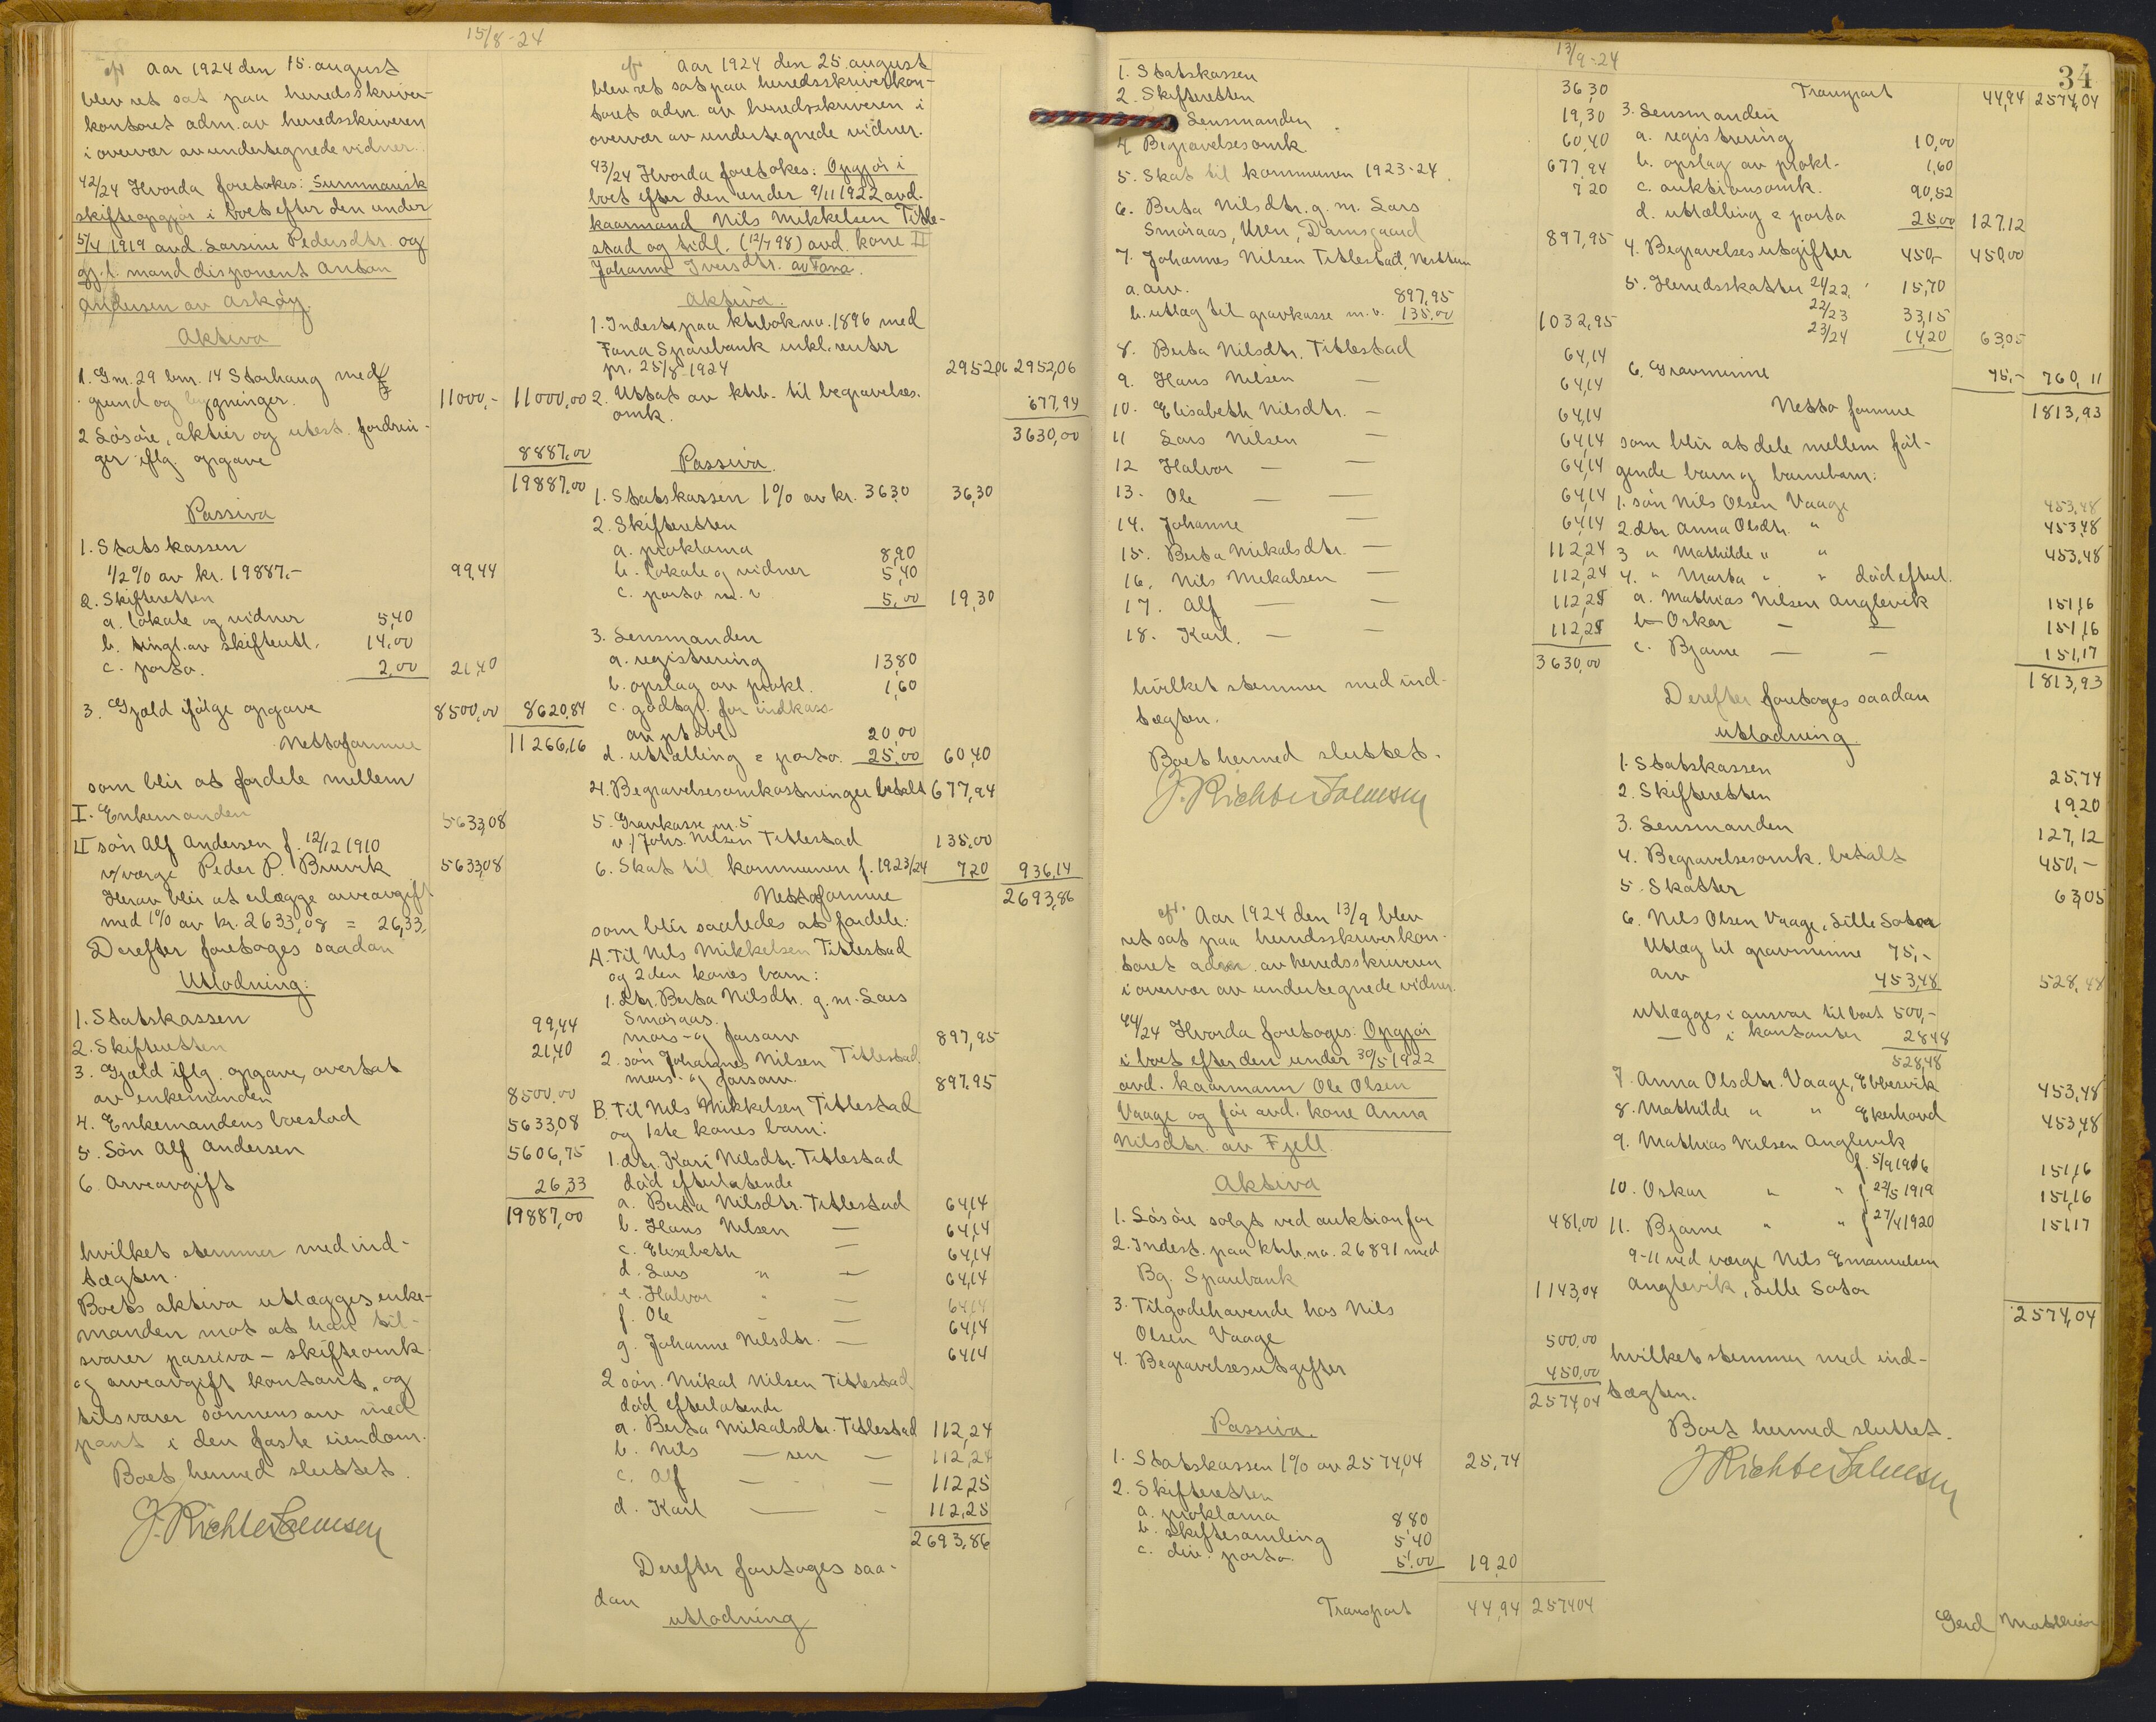 15/8-24
Aar 1924 den 15. august
blev ret sat paa herredsskriver-
kontoret adm. av herredsskriveren
i overvær av undertegnede vidner.
42/24 Hvorda foretokes: Summarisk
skifteopgjör i boet efter den under
5/4 1919 avd. Larsine Pedersdtr. og
gj.l. mand disponent Anton
Andersen av Asköy.
Aktiva
1. Gm. 29 brn. 14 Storhaug med
grund og bygninger. 11000,- 11000,00
2 Lösöre, aktier og utest. fordrin-
ger iflg. opgave 8887.00
19887.00
Passiva
1. Statskassen
1/2% av kr. 19887.- 99,44
2. Skifteretten
a. lokale og vidner 5,40
b. tingl. av skifteutl. 14.00
c. porto. 2,00 21,40
3. Gjæld ifölge opgave 8500,00 8620,84
Nettoformue 11266,16
som blir at fordele mellem
I. Enkemanden 5633,08
II sön Alf Andersen f. 12/12 1910
v/værge Peder P. Bruvik 5633,08
Herav blir at erlægge arveavgift
med 1% av kr. 2633,08 = 26,33.
Derefter foretoges saadan
Utlodning:
1. Statskassen 99,44
2. Skifteretten 21,40
3. Gjæld iflg. opgave, overtat
av enkemanden 8500.00
4. Enkemandens boeslod 5633,08
5. Sön Alf Andersen 5606,75
6. Arveavgift 26,33
19887,00
hvilket stemmer med ind-
tægten.
Boets aktiva utlægges enke-
manden mot at han til-
svarer passiva – skifteomk.
og arveavgift kontant, og
tilsvarer sönnens arv med
pant i den faste eiendom.
Boet hermed sluttet.
Aar 1924 den 25. august
blev ret sat paa herredsskriverkon-
toret adm. av herredsskriveren i
overvær av undertegnede vidner.
43/24 Hvorda foretokes: Opgjör i
boet efter den under 9/11 1922 avd.
kaarmand Nils Mikkelsen Title-
stad og tidl. (12/7 98) avd. kone II
Johanne Iversdtr. av Fana.
Aktiva.
1. Indest. paa ktrbok no. 1896 med
Fana Sparebank inkl. renter
pr. 25/8-1924 2952,06 2952,06
2. Uttat av ktrb. til begravelses.
omk. 677,94
3630,00
Passiva.
1. Statskassen 1% av kr. 3630 36,30
2. Skifteretten
a. proklama 8,90
b. lokale og vidner 5,40
c. porto m.v. 5,00 19,30
3. Lensmanden
a. registrering 13,80
b. opslag av prokl. 1,60
c. godtgj. for indkass-
20,00
d. uttælling & porto. 25,00 60,40
4. Begravelsesomkostninger betalt 677,94
5. Gravkasse m.5
v/ Johs. Nilsen Titlestad 135.00
6. Skat til kommunen f. 1923/24 7,20 936,14
Nettoformue 2693,86
som blir saaledes at fordele:
A. Til Nils Mikkelsen Titlestad
og 2den kones barn:
1. dtr. Berta Nilsdtr. g.m. Lars
Smöraas.
mors- og farsarv 897,95
2. sön Johannes Nilsen Titlestad
mors- og farsarv. 897.95
B. Til Nils Mikkelsen Titlestad
og 1ste kones barn:
1. dtr. Kari Nilsdtr. Titlestad
död efterlatende
a. Berta Nilsdtr. Titlestad 64,14
b. Hans Nilsen — 64,14
c. Elisabeth — 64,14
d. Lars " — 64,14
e. Halvor " — 64,14
f. Ole — 64,14
g. Johanne Nilsdtr. — 64,14
2 sön. Mikal Nilsen Titlestad
död efterlatende
a. Berta Mikalsdtr. Titlestad 112,24
b. Nils — sen — 112,24
c. Alf — — 112,25
d. Karl — - 112,25
2693,86
Derefter foretoges saa-
dan
utlodning
13/9-24
34
1. Statskassen 36,30
2. Skifteretten 19,30
Lensmanden 60,40
4. Begravelsesomk 677,94
5. Skat til kommunen 1923-24. 7 20
6. Berta Nilsdtr. g.m. Lars
Smöraas, Uren, Damsgaard 897,95
7. Johannes Nilsen Titlestad, Nesttun
a. arv. 897.95
b. utlæg til gravkasse m.v. 135,00 1032,95
8. Berta Nilsdtr. Titlestad 64,14
9. Hans Nilsen — 64,14
10. Elisabeth Nilsdtr. — 64,14
11 Lars Nilsen — 64,14
12 Halvor — — 64,14
13. Ole — — 64,14
14. Johanne — 64,14
15. Berta Mikalsdtr. — 112,24
16. Nils Mikalsen — 112,24
17. Alf — — 112,25
18. Karl. — — 112,25
3630,00
hvilket stemmer med ind-
tægten.
Boet hermed sluttet.
Aar 1924 den 13/9 blev
ret sat paa herredsskriverkon-
toret adm. av herredsskriveren
i overvær av undertegnede vidner.
44/24 Hvorda foretoges: Opgjör
i boet efter den under 30/5 1922
avd. kaarmann Ole Olsen
Vaage og för avd. kone Anna
Nilsdtr. av Fjell.
Aktiva
1. Lösöre solgt ved auktion for 481,00
2. Indest. paa ktrb. no. 26891 med
Bg. Sparebank 1143,04
3. Tilgodehavende hos Nils
Olsen Vaage 500,00
4. Begravelsesutgifter 450,00
2574,04
Passiva.
1. Statskassen 1% av 2574,04 25,74
2. Skifteretten
a. proklama 8 80
b. skiftesamling 5,40
c. div. porto 5,00 19,20
Transport 44,94 2574 04
Transport 44,94 2574,04
3. Lensmanden
a. registrering 10,00
b. opslag av prokl- 1,60
c. auktionsomk. 90,52
d. uttælling & porto 25.00 127.12
4. Begravelsesutgifter 450,- 450,00
5. Herredsskatter 21/22. 15,70
22/23 33,15
23/24 14,20 63,05
6. Gravminne 75,- 760,11
Netto formue 1813,93
som blir at dele mellem föl-
gende barn og barnebarn:
1. sön Nils Olsen Vaage 453,48
2. dtr. Anna Olsdtr. " 453,48
3 " Mathilde " " 453,48
4. " Marta " " död efterl.
a. Mathias Nilsen Anglevik 151,16
b – Oskar – — 151,16
c. Bjarne — — 151,17
1813,93
Derefter foretoges saadan
utlodning
1. Statskassen 25.74
2. Skifteretten 19,20
3. Lensmanden 127,12
4. Begravelsesomk. betalt 450,-
5. Skatter 63,05
6. Nils Olsen Vaage, Lille Sotra
Utlæg til gravminne 75,-
arv 453,48 528,48
utlægges i ansvar til boet 500,-
— i kontanter 28,48
528,48
7. Anna Olsdtr. Vaage, Ebbesvik 453,48
8. Mathilde " " Ekerhovd 453,48
9. Mathias Nilsen Anglevik
f. 5/9 1916 151,16
10. Oskar " " f. 22/5 1919 151,16
11. Bjarne " " f 27/4 1920 151,17
9-11 ved værge Nils Emanuelsen
Anglevik, Lille Sotra
2574,04
hvilket stemmer med ind-
tægten.
Boet hermed sluttet.
Gerd